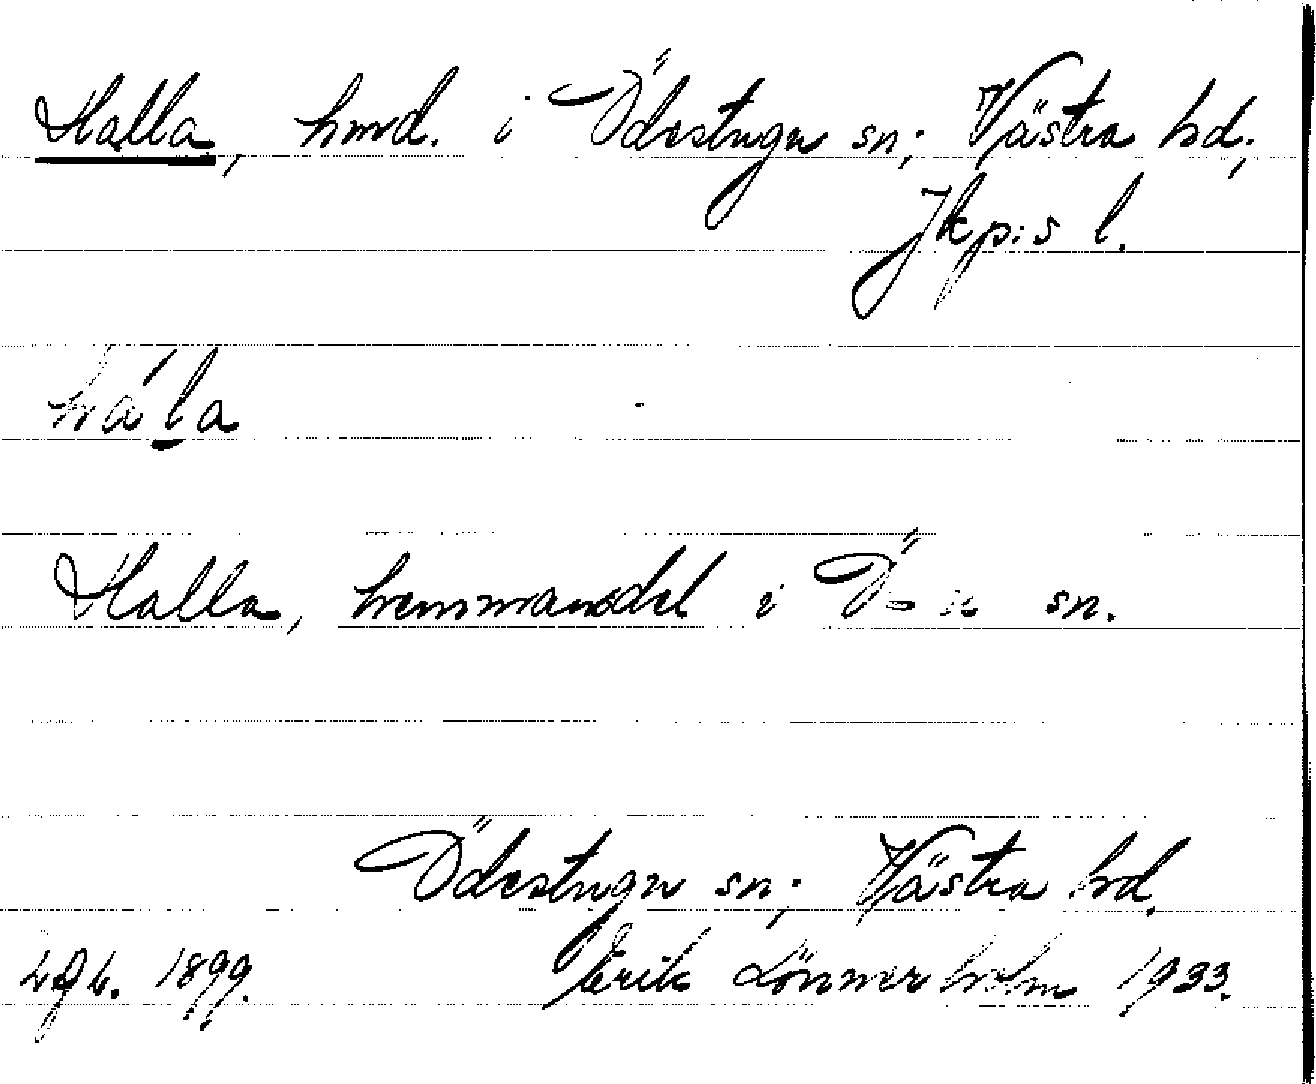 Halla, hmd. i Ödestugu sn; Västra hd;
Jkp:s l.
há l̠a
Halla, hemmandel i Ö-u sn.
Ödestugu sn; Västra hd.
1899. Erik Lönnerholm 1933.